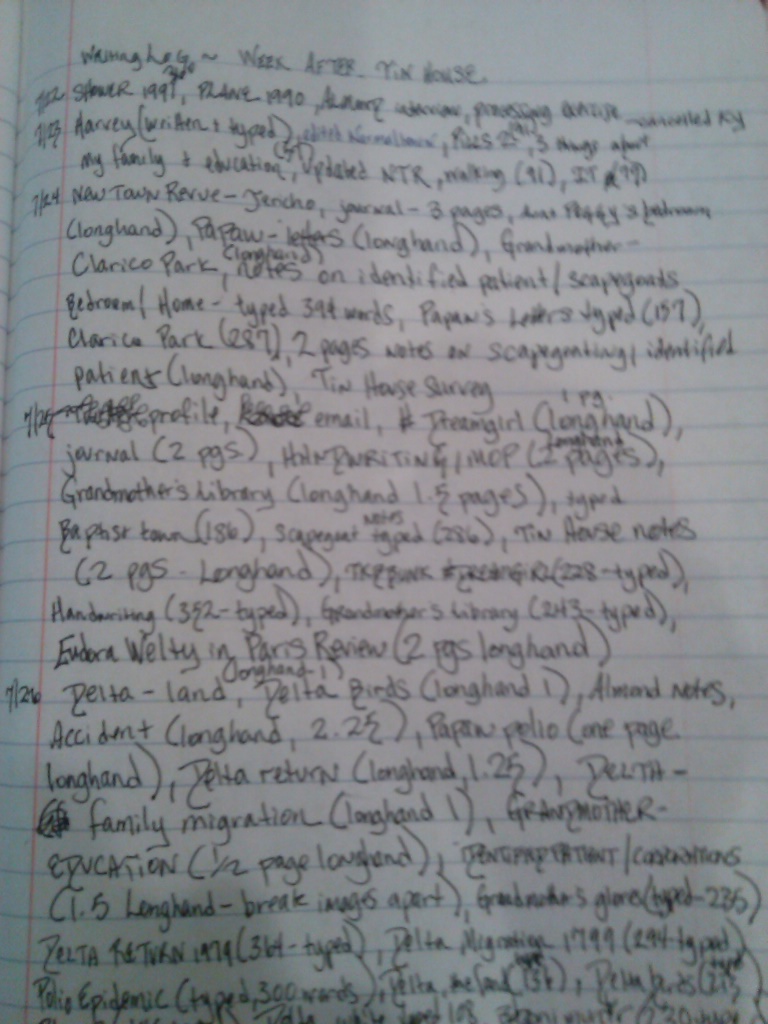 Writing Log ~ WEEK AFTER TIN HOUSE
7/22 SHOWER 1997, PLANE 1990, interview, processing exercise - cancelled KY
7/23 Harvey (written + typed), 3 things apart
my family + education, Updated NTR, walking (91), IT (79)
7/24 NEW TOWN REVUE - Jericho, journal - 3 pages, Peggy's bedroom
(longhand), Papaw - letters (longhand), Grandmother -
Clarico Park (longhand), notes on identified patient / scapegoats
Bedroom / Home - typed 394 words, Papaw's Letters typed (157),
Clarico Park (287), 2 pages notes on scapegoating / identified
patient (longhand), Tin House Survey
7/25 profile, email, Dreamgirl (longhand 1 pg.),
journal (2 pgs), HANDWRITING / MOP (2 pages longhand),
Grandmother's Library (longhand 1.5 pages), typed
Baptist town (186), scapegoat notes typed (286), Tin House notes
(2 pgs - Longhand), DREAMGIRL (228 - typed),
Handwriting (352 - typed), Grandmother's Library (243 - typed),
Eudora Welty in Paris Review (2 pgs longhand)
7/26 Delta - land (longhand 1), Delta Birds (longhand 1), Almond notes,
Accident (longhand, 2.25), Papaw polio (one page
longhand), Delta return (longhand, 1.25), DELTA -
family migration (longhand 1), GRANDMOTHER -
EDUCATION (1/2 page longhand), IDENT PATIENT /
(1.5 Longhand - break images apart), Grandmother's gloves (typed - 235)
DELTA RETURN 1979 (364 - typed), Delta Migration 1799 (294 - typed)
Polio Epidemic (typed, 300 words), Delta, the land (136), Delta birds
Delta typed 108